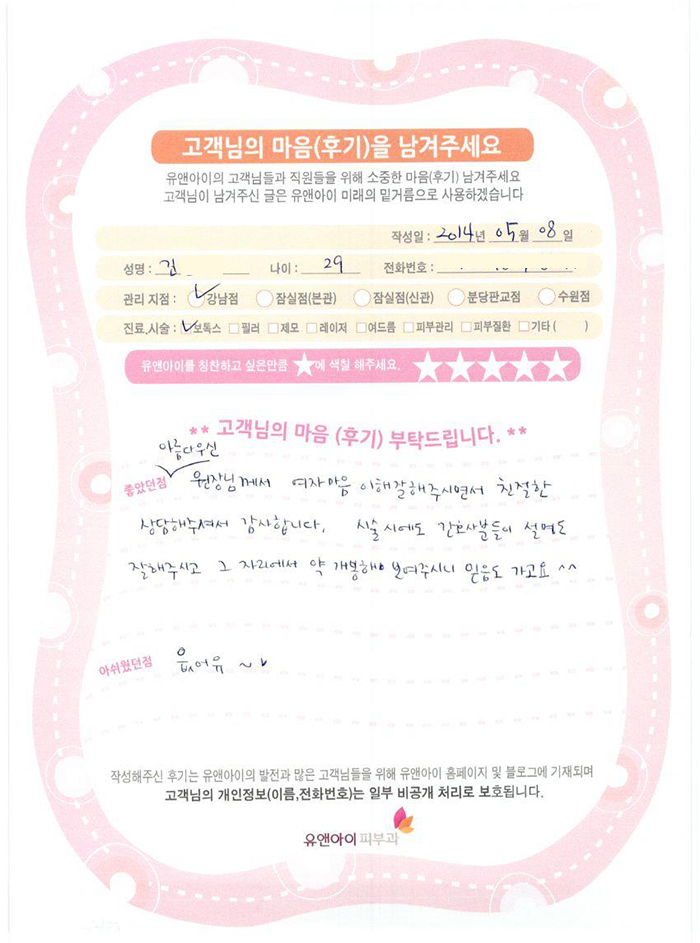 고객님의 마음(후기)을 남겨주세요
유앤아이의 고객님들과 직원들을 위해 소중한 마음(후기) 남겨주세요
고객님이 남겨주신 글은 유앤아이 미래의 밑거름으로 사용하겠습니다
작성일 : 2014년 05월 08일
성명 : 김 나이 : 29 전화번호 :
관리 지점 : 강남점 잠실점(본관) 잠실점(신관) 분당판교점 수원점
진료,시술 : 보톡스 필러 제모 레이저 여드름 피부관리 피부질환 기타 ( )
유앤아이를 칭찬하고 싶은만큼 ★에 색칠 해주세요. ★★★★★
** 고객님의 마음 (후기) 부탁드립니다. **
아름다우신
좋았던점 원장님께서 여자마음 이해잘해주시면서 친절한
상담해주셔서 감사합니다. 시술시에도 간호사분들이 설명도
잘해주시고 그 자리에서 약 개봉해 보여주시니 믿음도 가고요 ^^
아쉬웠던점 없어유 ~
작성해주신 후기는 유앤아이의 발전과 많은 고객님들을 위해 유앤아이 홈페이지 및 블로그에 기재되며
고객님의 개인정보(이름,전화번호)는 일부 비공개 처리로 보호됩니다.
유앤아이 피부과